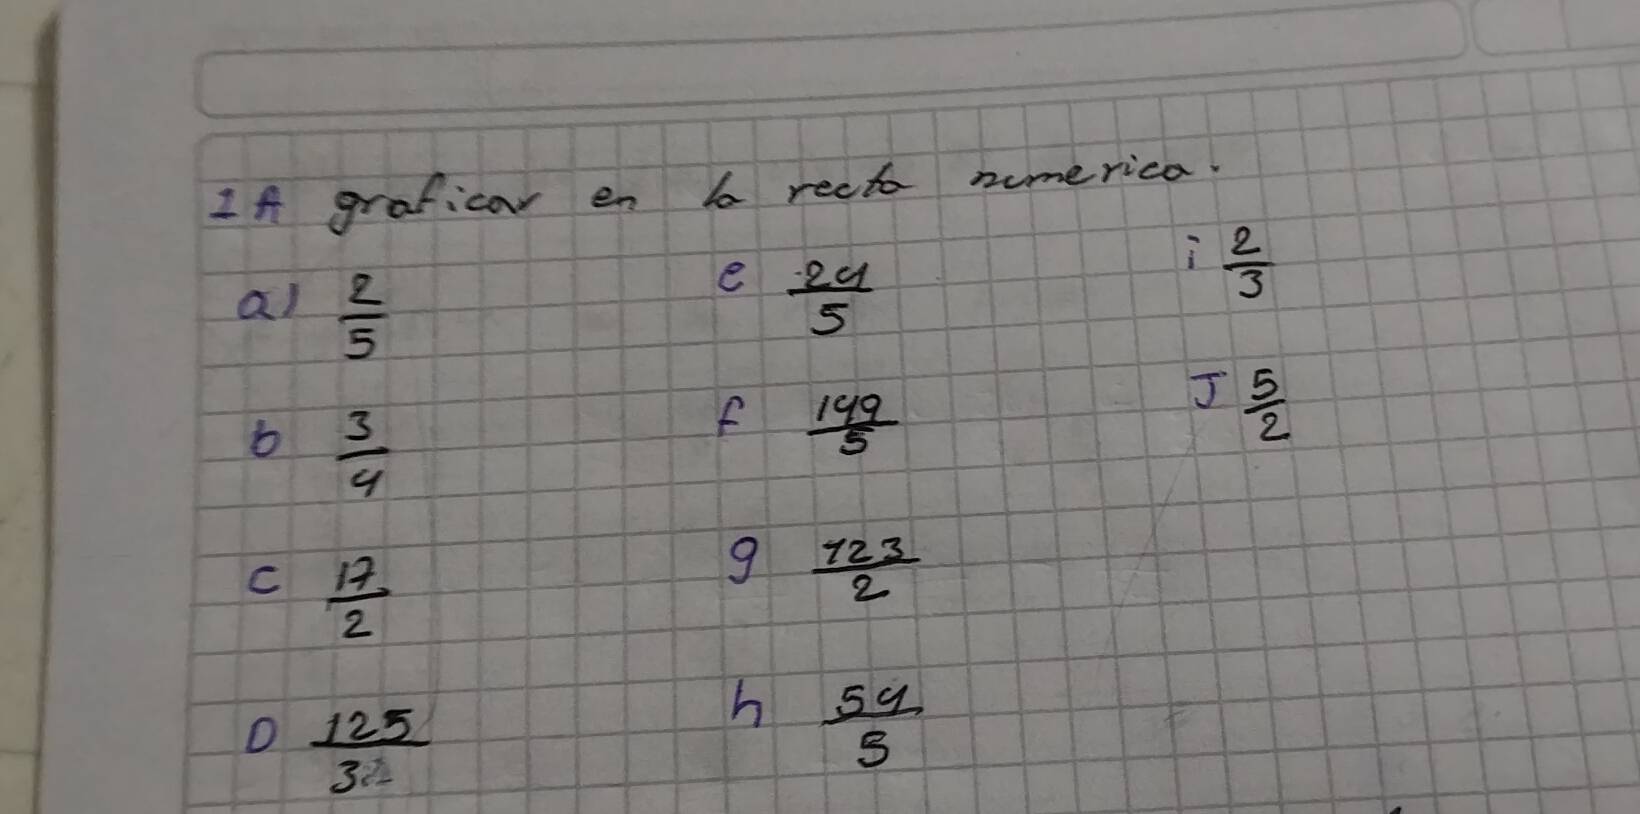 1A graficar en la recta numerica.
a) 2/5
b 3/4
c 17/2
D 125/3
e 24/5
f 149/5
g 123/2
h 54/5
i 2/3
J 5/2